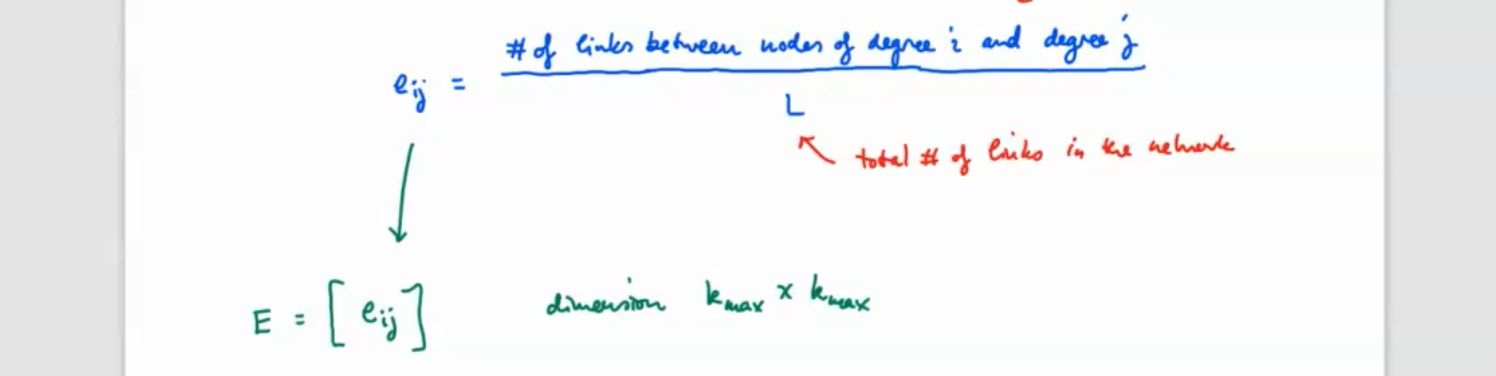 # of links between nodes of degree i and degree j
e_ij =
L
total # of links in the network
E = [ e_ij ] dimension k_max × k_max